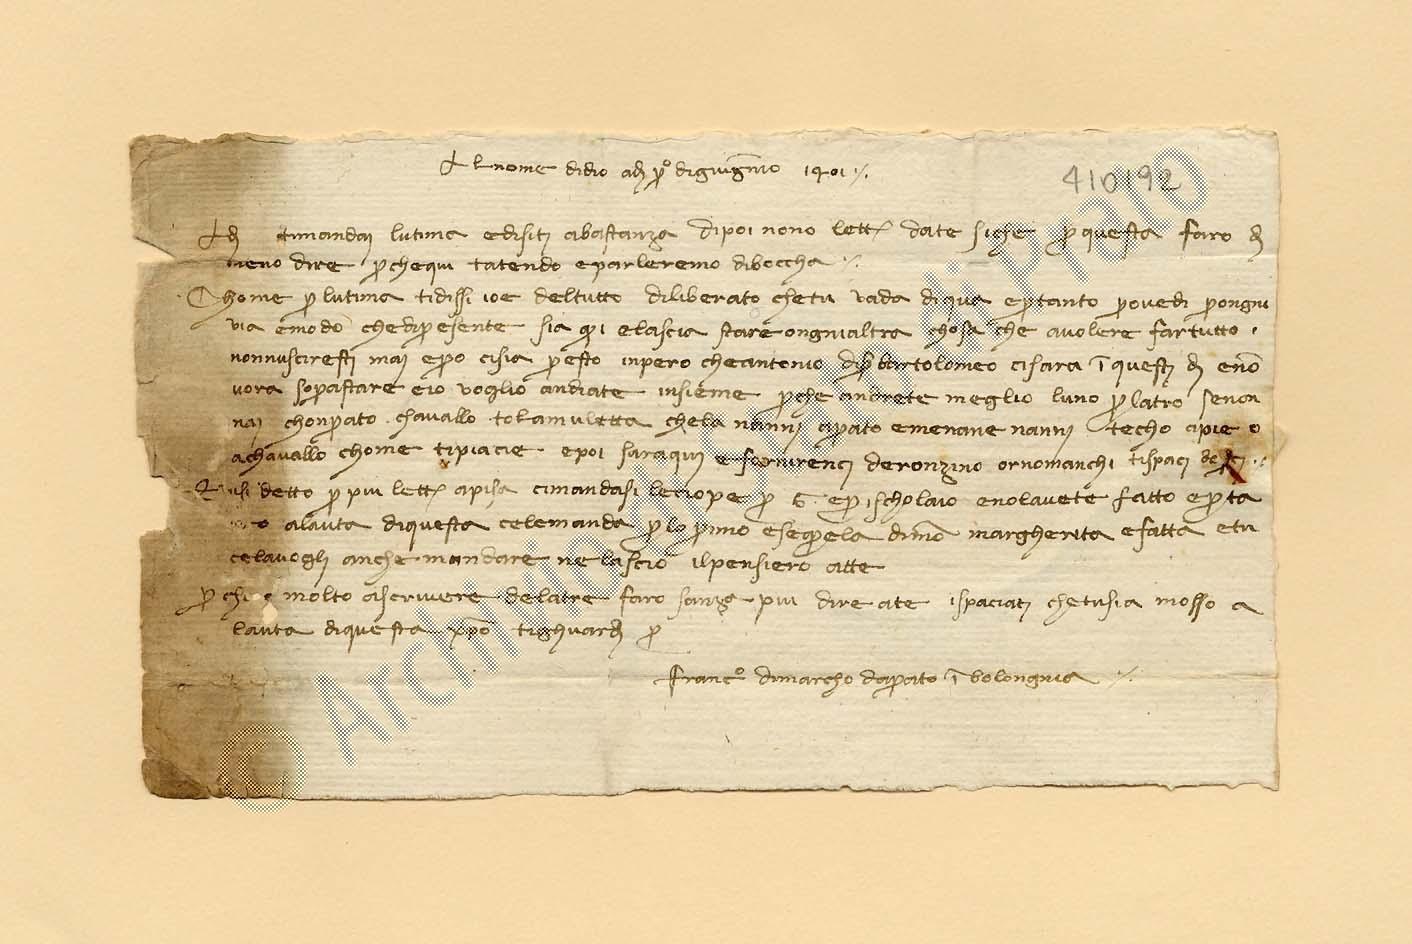 Al nome didio adi pº digiungnio 1401
410192
timandai lutima edisiti abastanza dipoi nono lettª date siche p questa faro di
meno dire p chequi tatendo e parleremo diboccha
Chome p lutima tidissi ioe deltutto diliberato chetu vada diqua e ptanto provedi p ongni
via emodo che dipresente sia qui e lascia stare ongnialtra chosa che avolere fartutto
nonnusciresti mai epero cisia presto inpero che antonio di bartolomeo cisara i questi di e no
vora soprastare eio voglio andiate insieme p che andrete meglio luno p latro se non
nai chonprato chavallo to la muletta che la nanni a prato e menane nanni techo a pie o
achavallo chome tipiacie e poi sara qui e fornirenci deronzino ornomanchi tispaci
detto p piu lettª a pisa cimandasi le ciope p G. e p ischolaio e nolavete fatto e p ta
alauta diquesta celemanda p lo primo e se quela di mª margherita e fatta e tu
cela vogli anche mandare ne lascio il pensiero atte
p chi o molto a iscrivere delatre faro sanza piu dire ate ispaciati chetusia mosso a
lauta diquesta xpo tighuardi p
Francº dimarcho daprato i bolongnia
© Archivio di Stato di Prato